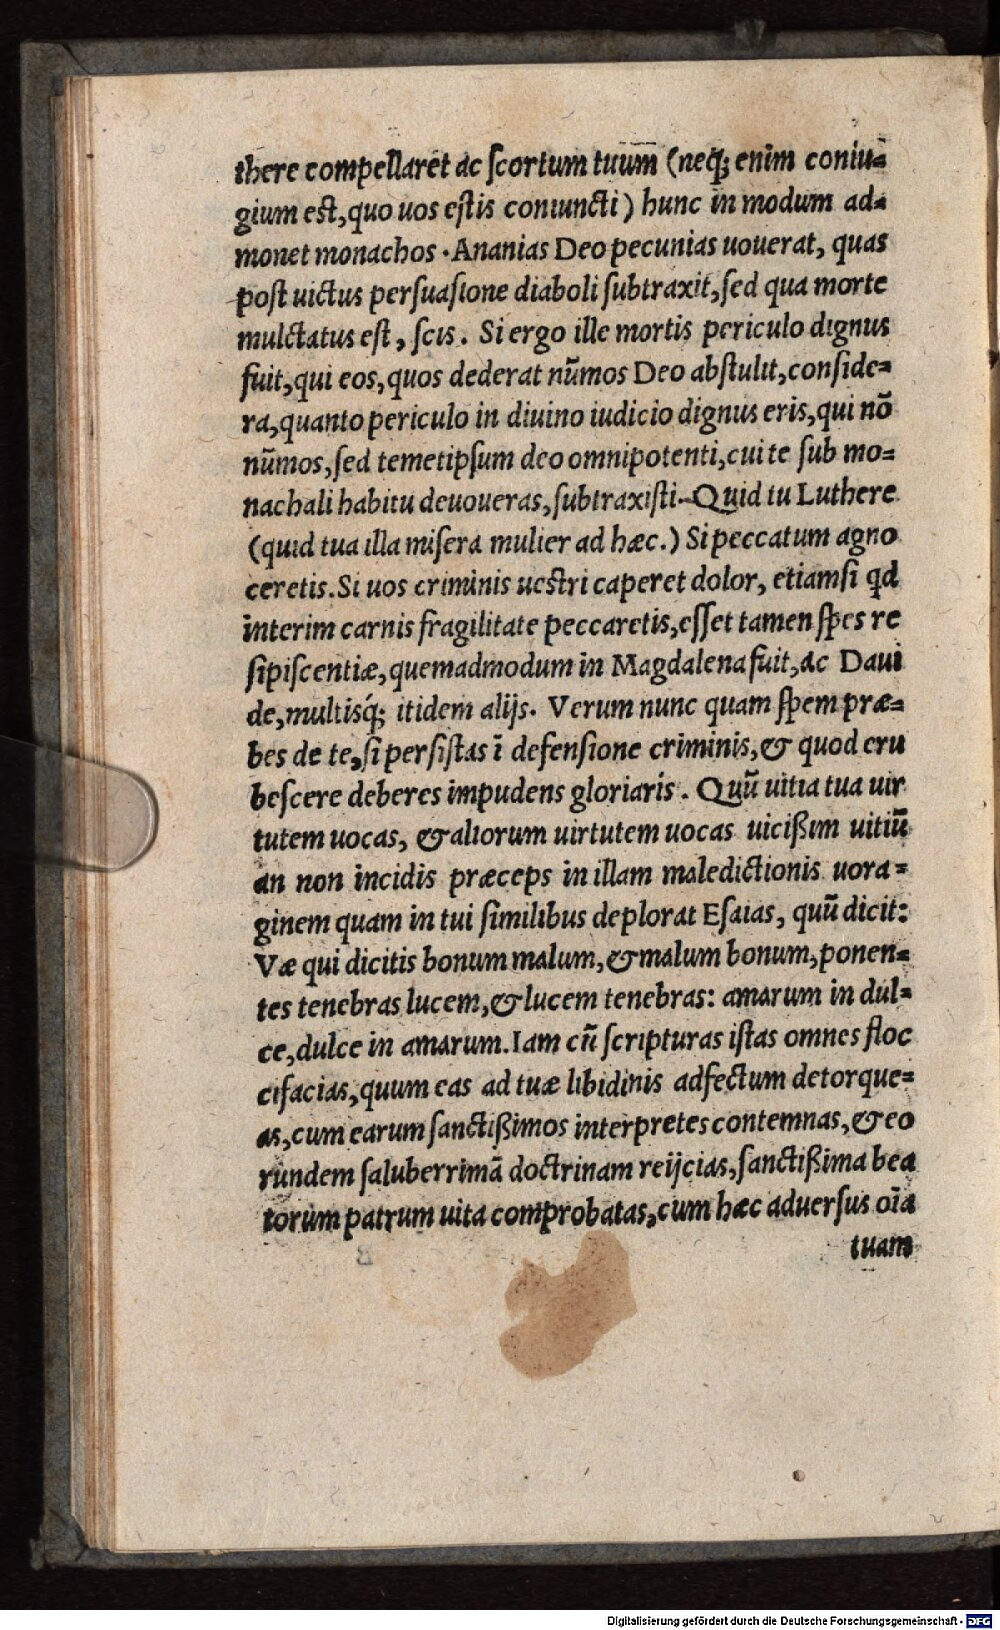 there compellaret ac ſcortum tuum (neq́; enim coniu⸗
gium est, quo uos eſtis coniuncti) hunc in modum ad⸗
monet monachos. Ananias Deo pecunias uouerat, quas
poſt uictus perſuaſione diaboli ſubtraxit, ſed qua morte
mulctatus eſt, ſcis. Si ergo ille mortis periculo dignus
fuit, qui eos, quos dederat nũmos Deo abſtulit, conſide⸗
ra, quanto periculo in diuino iudicio dignus eris, qui nõ
nũmos, ſed temetipſum deo omnipotenti, cui te ſub mo⸗
nachali habitu deuoueras, ſubtraxiſti. Quid tu Luthere
(quid tua illa miſera mulier ad hæc.) Si peccatum agno
ceretis. Si uos criminis ueſtri caperet dolor, etiamſi qd
interim carnis fragilitate peccaretis, eſſet tamen ſpes re
ſipiſcentiæ, quemadmodum in Magdalena fuit, ac Daui
de, multisq́; itidem alijs. Verum nunc quam ſpem præ⸗
bes de te, ſi perſiſtas ĩ defenſione criminis, & quod eru
beſcere deberes impudens gloriaris. Quũ uitia tua uir
tutem uocas, & aliorum uirtutem uocas uicißim uitiũ
an non incidis præceps in illam maledictionis uora⸗
ginem quam in tui ſimilibus deplorat Eſaias, quũ dicit:
Væ qui dicitis bonum malum, & malum bonum, ponen⸗
tes tenebras lucem, & lucem tenebras: amarum in dul⸗
ce, dulce in amarum. Iam cũ ſcripturas iſtas omnes floc
cifacias, quum eas ad tuæ libidinis adfectum detorque⸗
as, cum earum ſanctißimos interpretes contemnas, & eo
rundem ſaluberrimã doctrinam reijcias, ſanctißima bea
torum patrum uita comprobatas, cum hæc aduerſus oĩa
tuam
Digitalisierung gefördert durch die Deutsche Forschungsgemeinschaft - DFG